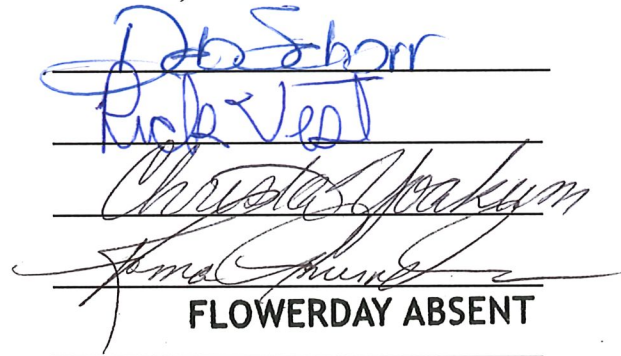 Deb Schorr
Rick Vest
Christa Yoakum
Roma
FLOWERDAY ABSENT